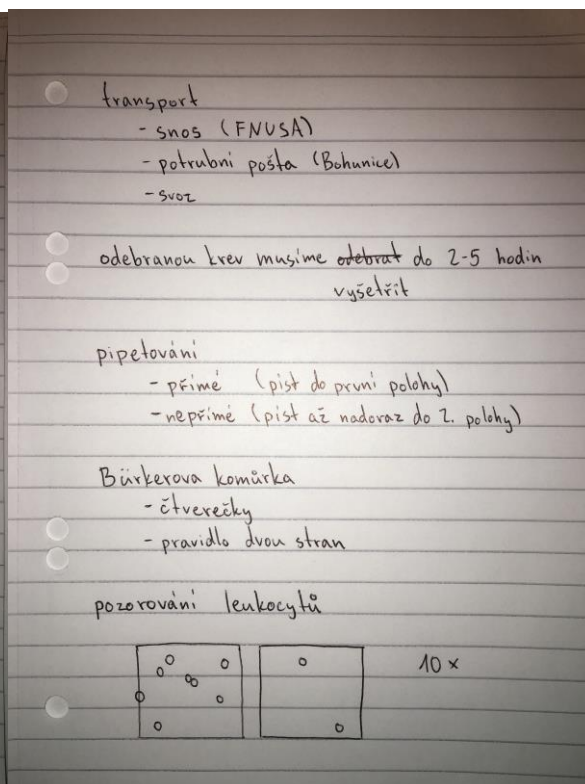 transport
- snos (FNUSA)
- potrubní pošta (Bohunice)
- svoz
odebranou krev musíme odebrat do 2-5 hodin
vyšetřit
pipetování
- přímé (píst do první polohy)
- nepřímé (píst až nadoraz do 2. polohy)
Bürkerova komůrka
- čtverečky
- pravidlo dvou stran
pozorování leukocytů
10 x